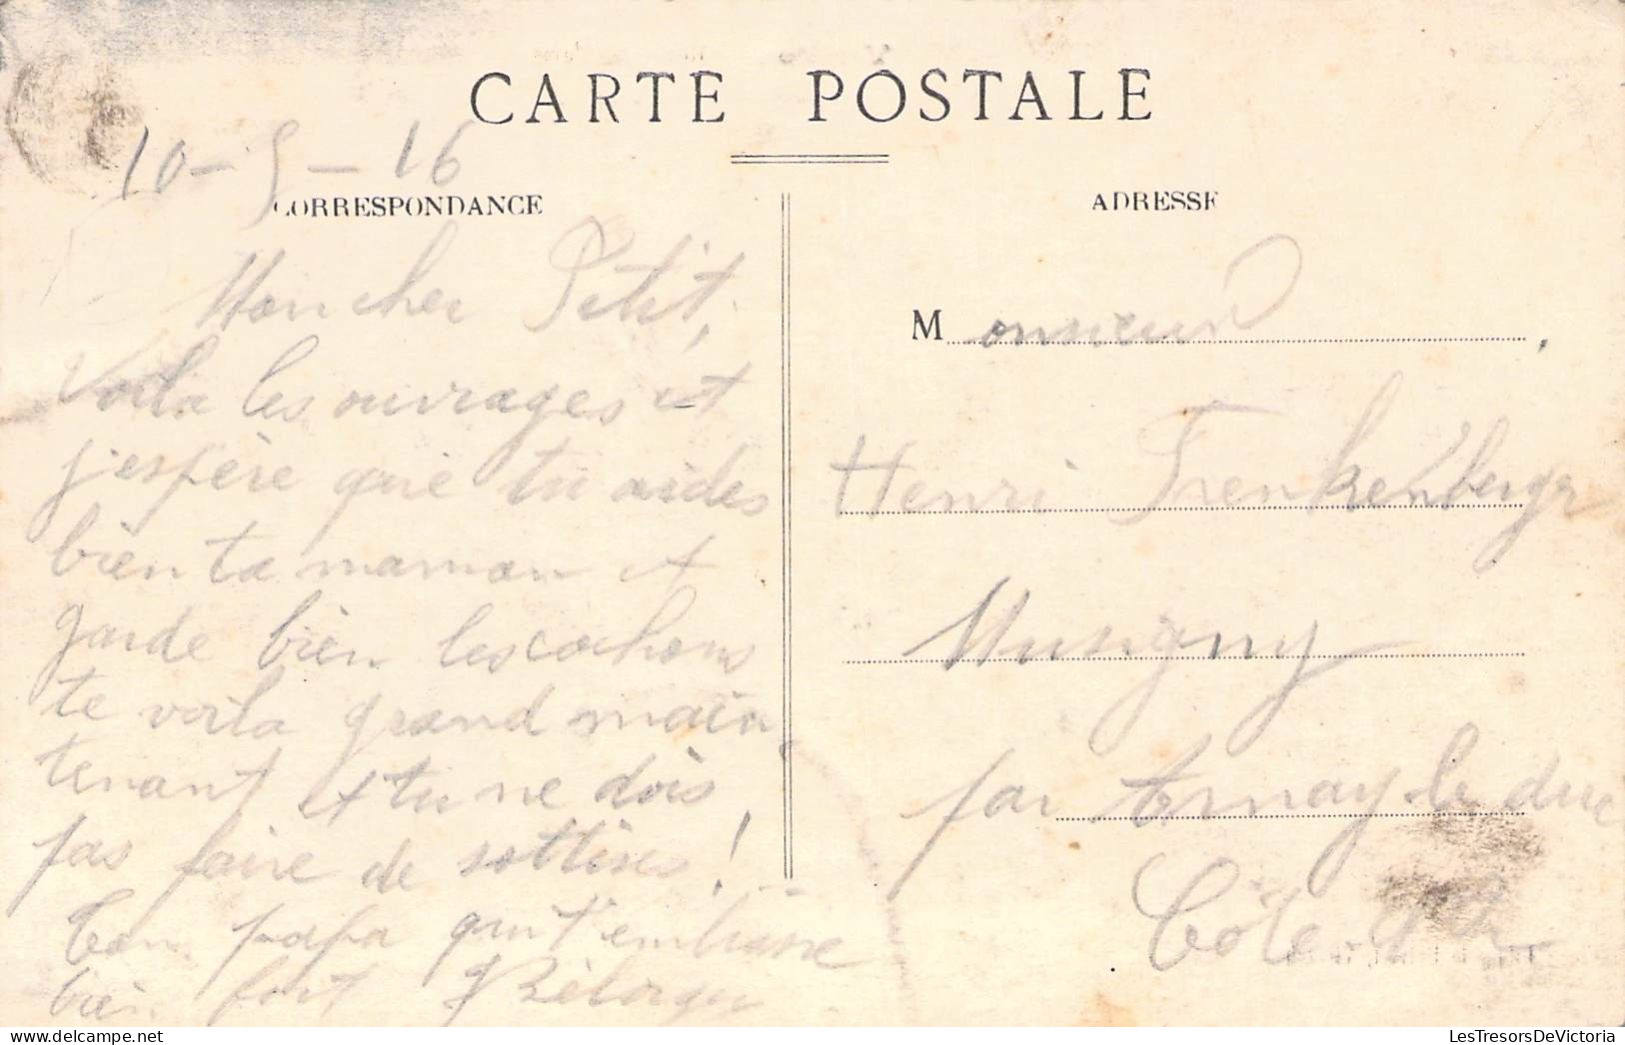 CARTE POSTALE
10-5-16
CORRESPONDANCE
Mon cher Petit,
Voila les ouvrages et
j'espère que tu aides
bien ta maman et
garde bien les cochons
te voila grand main
tenant et tu ne dois
pas faire de sottises !
Ton papa qui t'embrasse
bien fort
ADRESSE
Monsieur
Henri Trenkenberger
Musigny
par Arnay le duc
Côte d'Or
LesTresorsDeVictoria.com